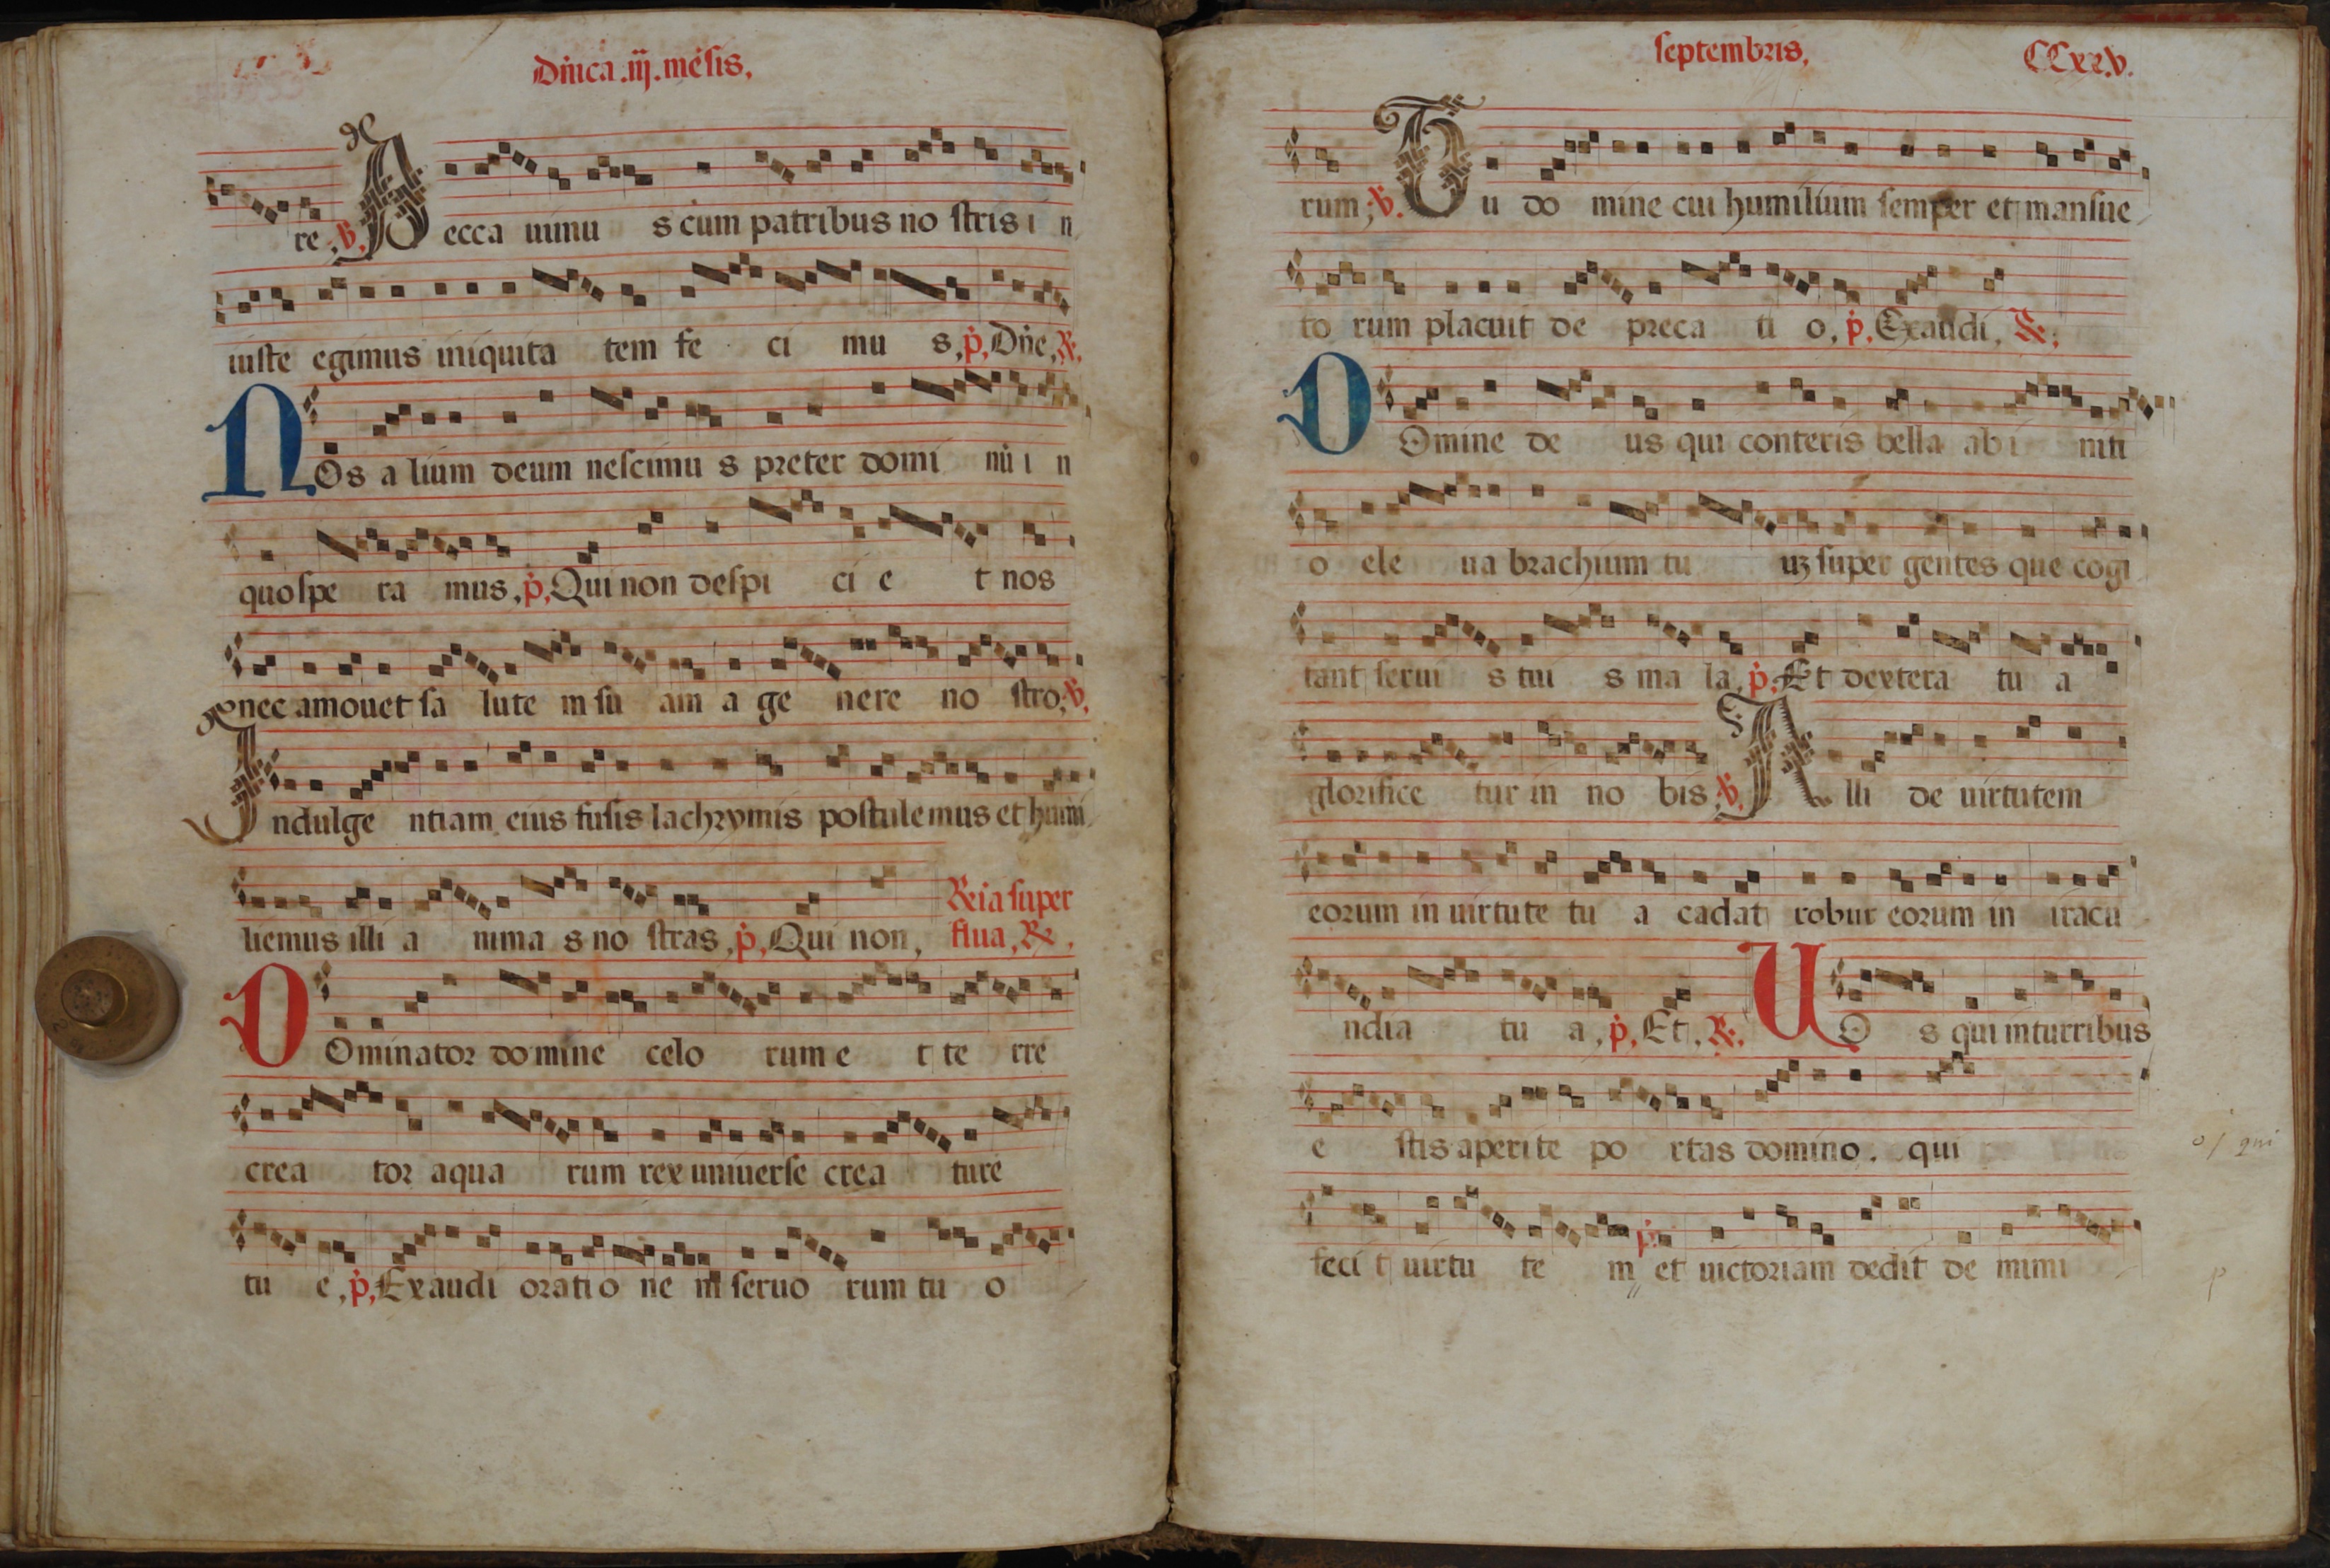 Dnica .iij. mesis.
re, ℣. Pecca uimu s cum patribus no stris i n
iuste egimus iniquita tem fe ci mu s, p, Dne, ℟.
NOs a lium deum nescimu s preter domi nu i n
quo spe ra mus, p, Qui non despi ci e t nos
donec amouet sa lute m su am a ge nere no stro, ℣.
Indulge ntiam eius fusis lachrymis postulemus et humi
liemus illi a nima s no stras, p, Qui non, Reia super
flua, ℟.
DOminator domine celo rum e t te rre
crea tor aqua rum rex uniuerse crea ture
tu e, p, Exaudi oratio ne m seruo rum tu o
septembris, CCxx.v.
rum, ℣. Tu do mine cui humilium semper et mansue
to rum placuit de preca ti o, p, Exaudi, ℟.
DOmine de us qui conteris bella ab i niti
o ele ua brachium tu uz super gentes que cogi
tant serui s tui s ma la, p, Et dextera tu a
glorifice tur in no bis, ℣. Alli de uirtutem
eorum in uirtute tu a cadat robur eorum in iracu
ndia tu a, p, Et, ℟. UO s qui in turribus
e stis aperite po rtas domino. qui
o/ qui
feci t uirtu te m p et uictoriam dedit de inimi
p